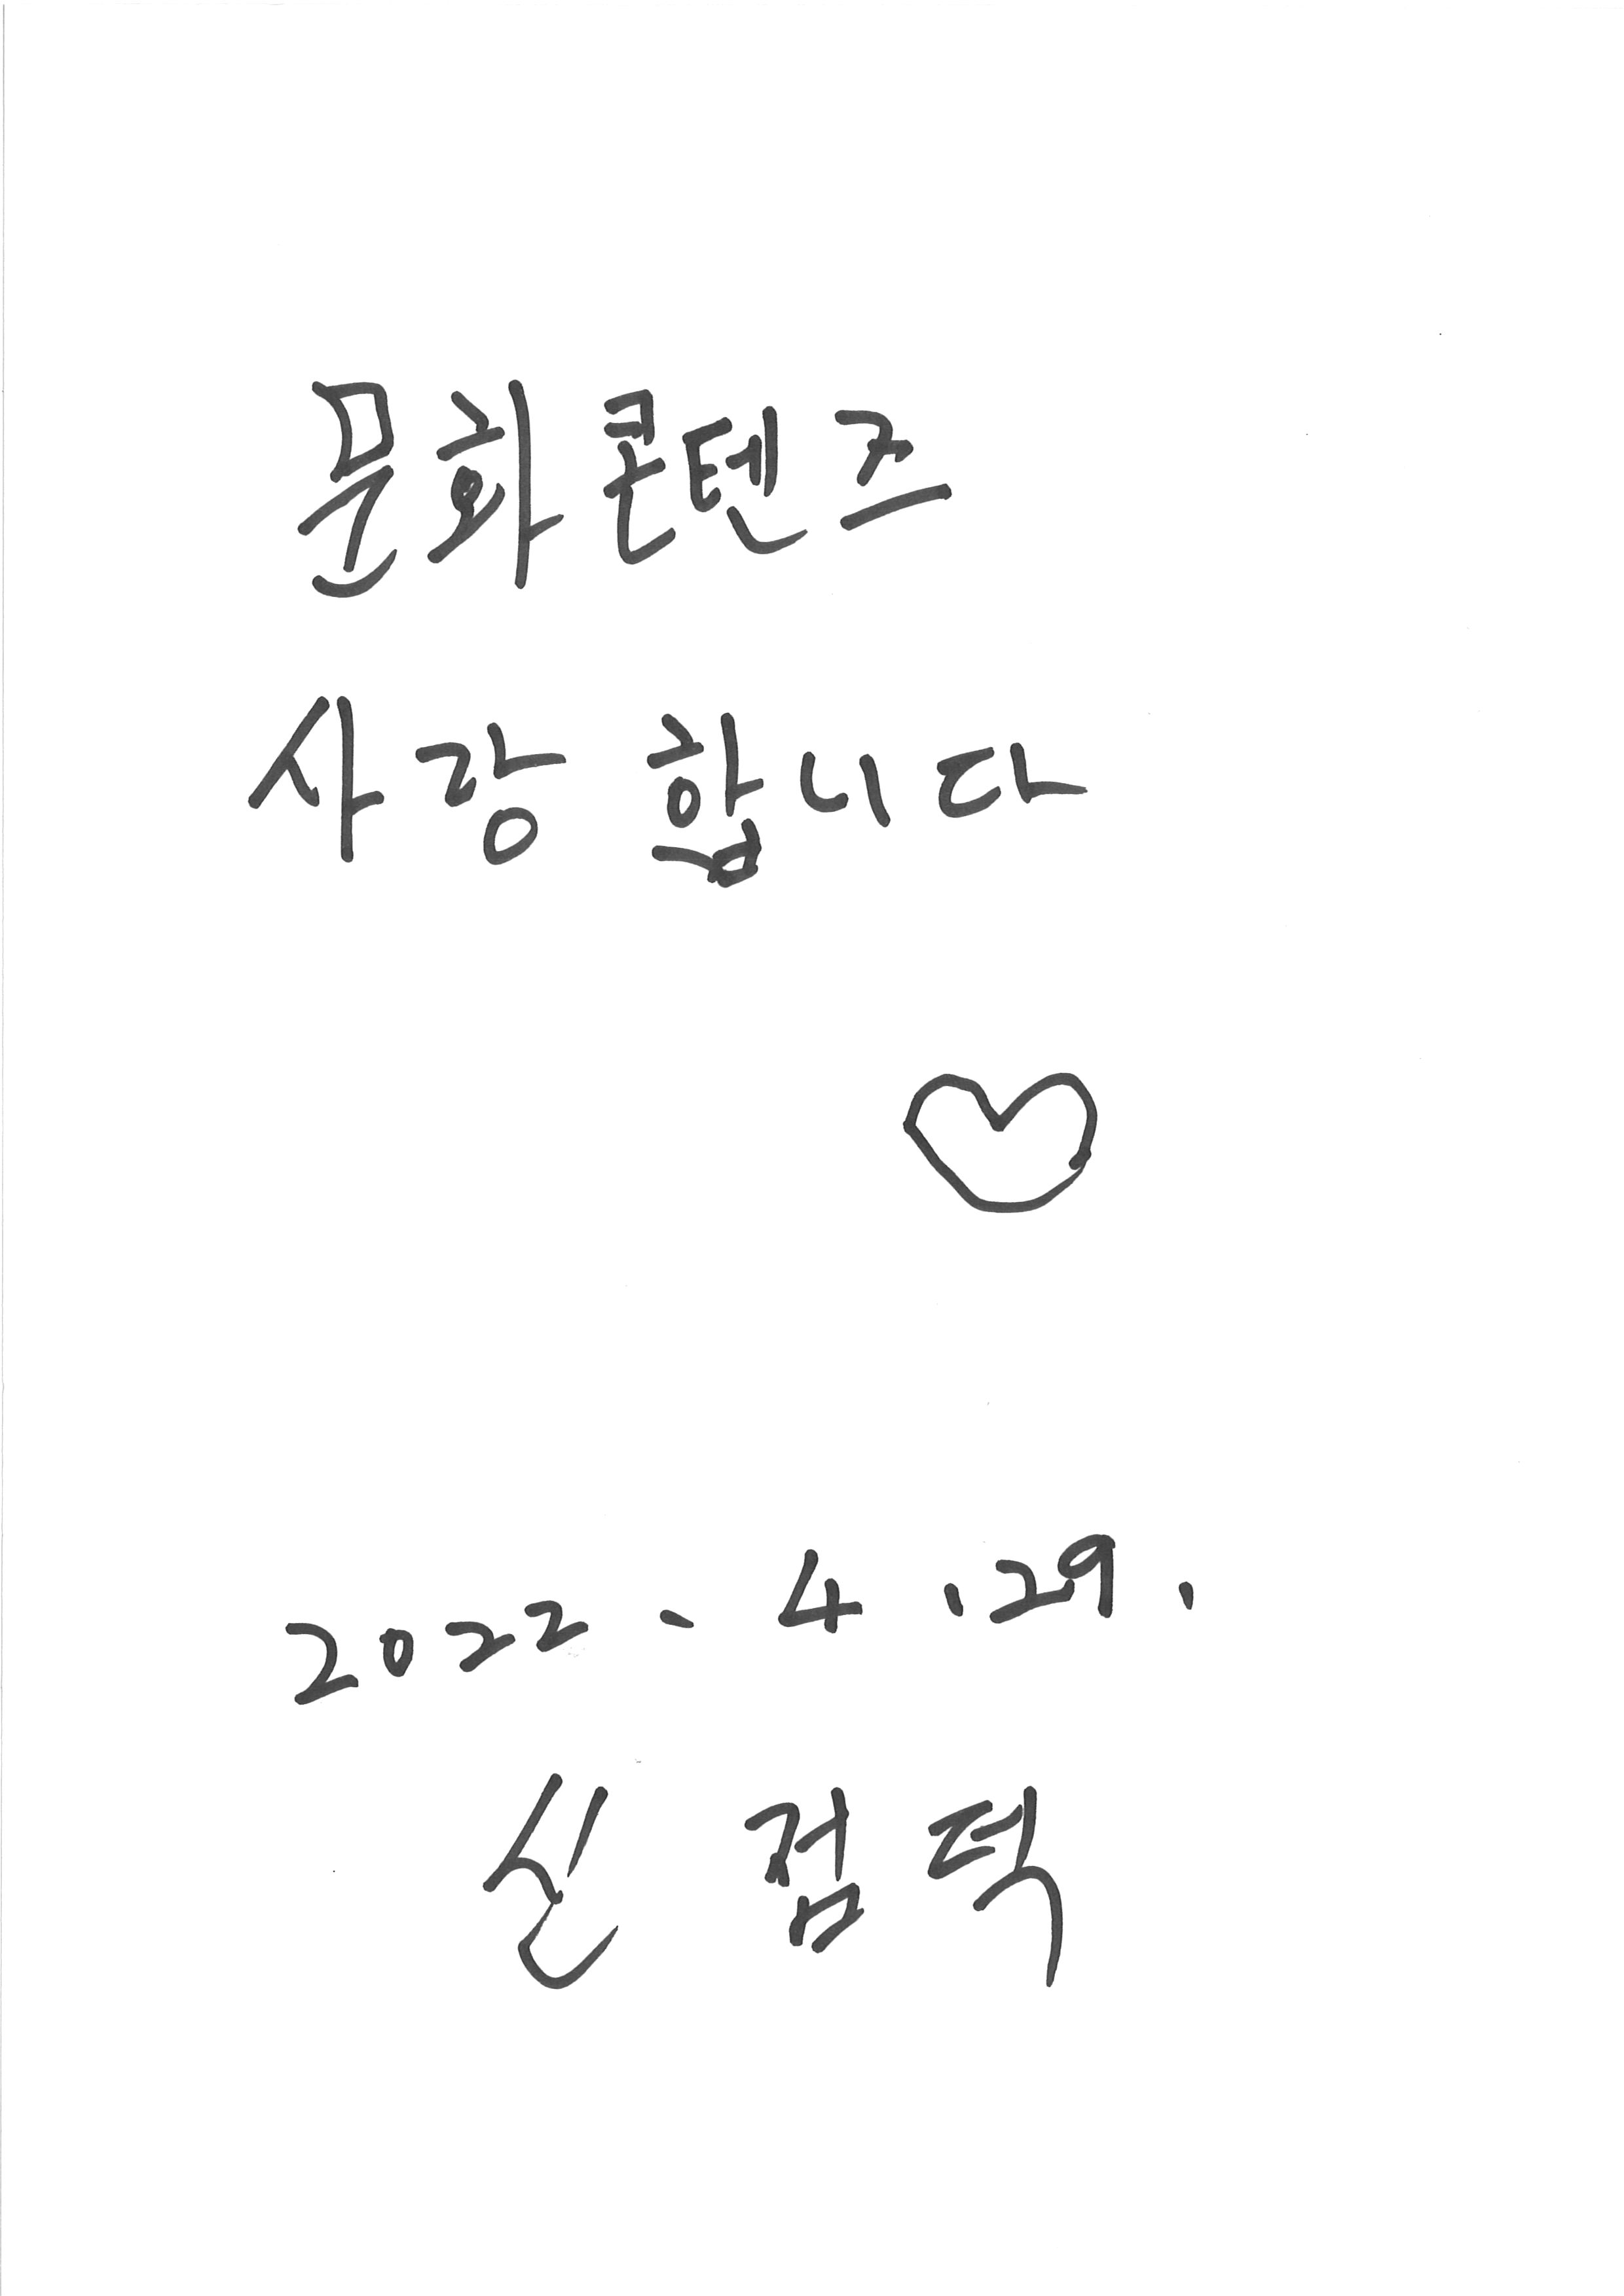 문화콘텐즈
사랑 합니다
2022. 4.29.
신 검 턱